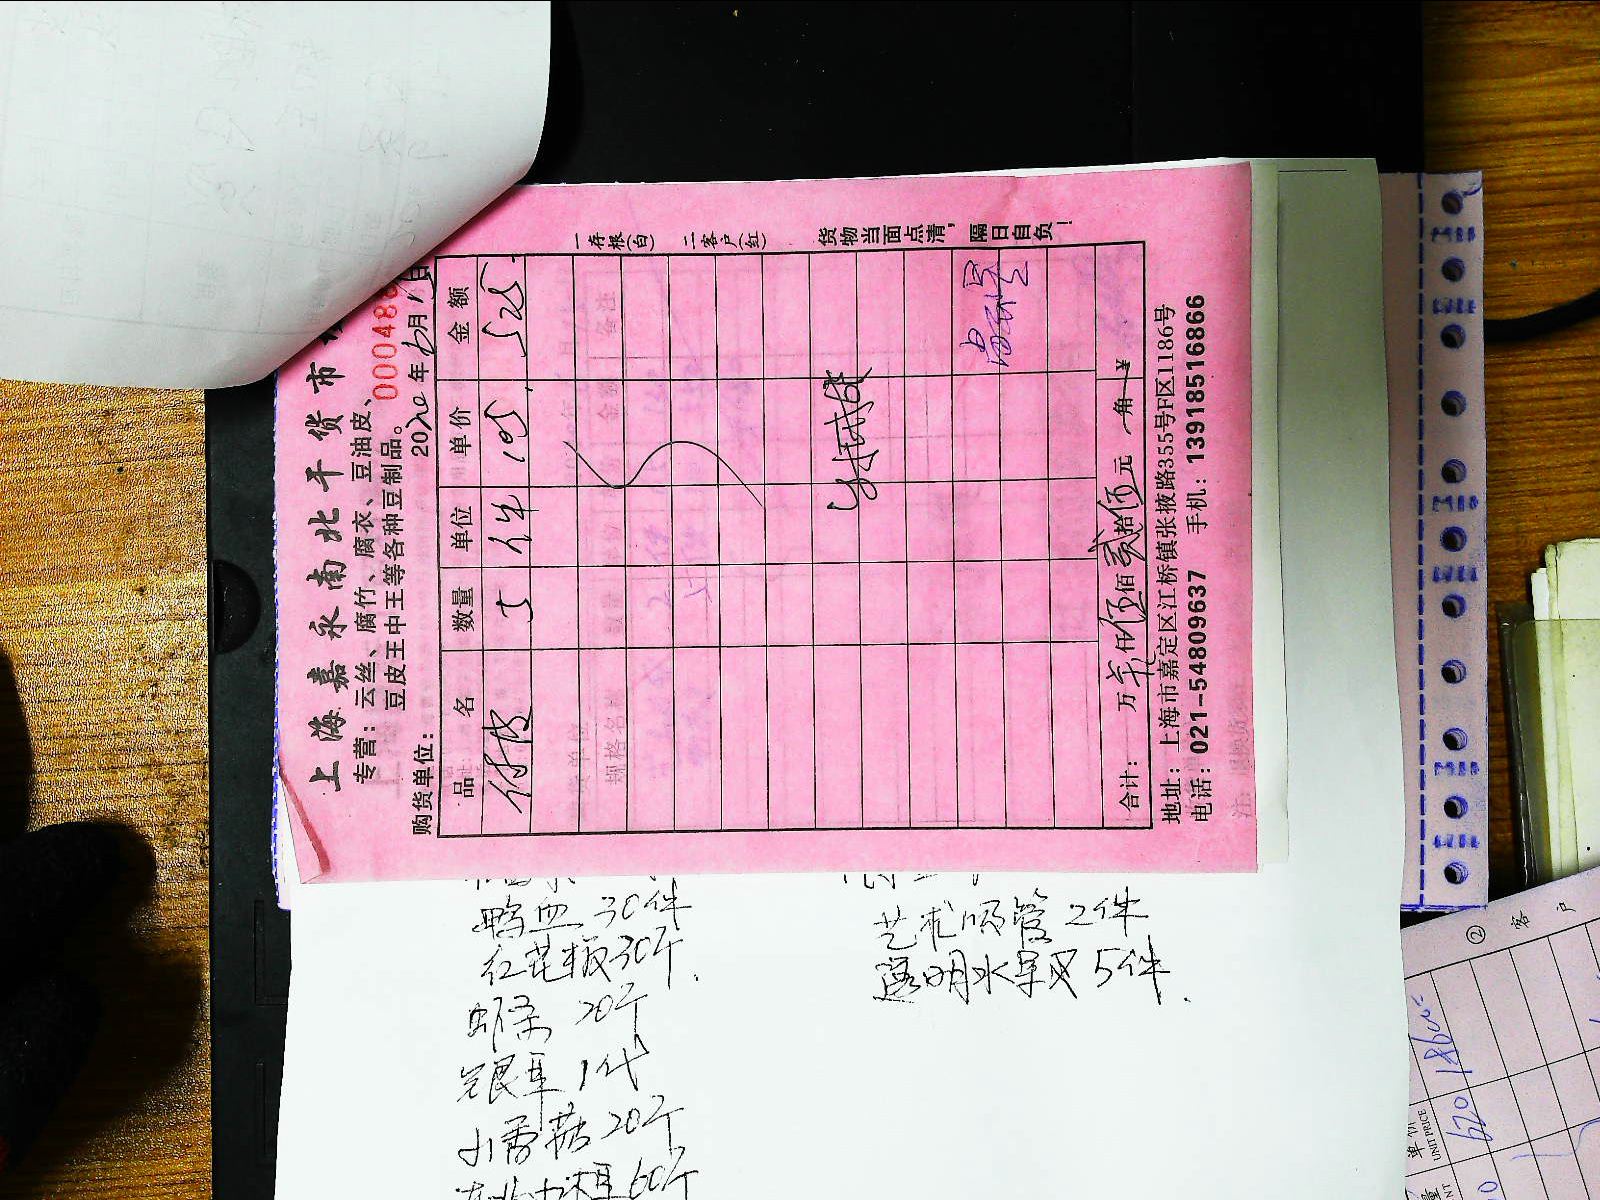 上海嘉永南北干货市
专营：云丝、腐竹、腐衣、豆油皮、
豆皮王中王等各种豆制品。
购货单位：
2020年6月1日
品名 数量 单位 单价 金额
付皮 5 件 105. 525.
合计： 万 仟伍佰贰拾伍元 角 ¥
地址：上海市嘉定区江桥镇张掖路355号F区1186号
电话：021-54809637 手机：13918516866
一存根(白) 二客户(红) 货物当面点清，隔日自负！
鸭血 30件
红花粄30斤.
虾条 20斤
银耳 1代
小香菇 20斤
60斤
艺术吸管 2件
透明水果叉 5件.
② 客户
单价
UNIT PRICE
620 18600